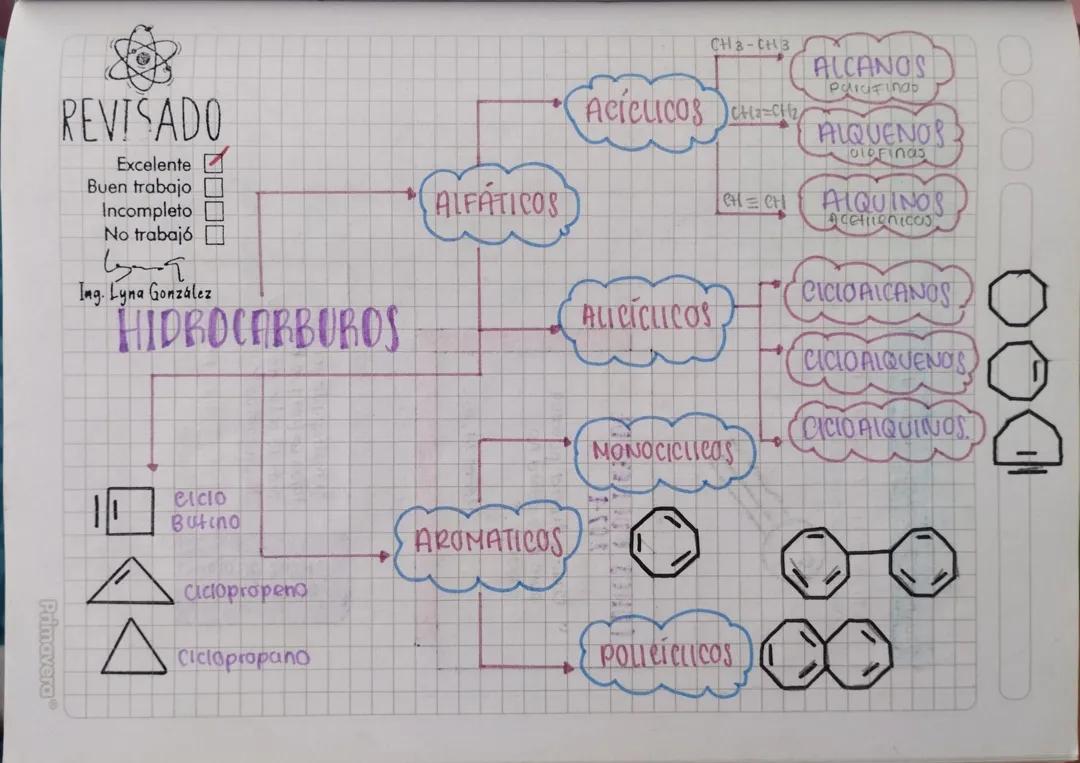 REVISADO
Excelente
Buen trabajo
Incompleto
No trabajó
Ing. Lyna González
HIDROCARBUROS
ALFÁTICOS
ACÍCLICOS
CH3-CH3
ALCANOS
parafinas
CH2=CH2
ALQUENOS
olefinas
CH≡CH
ALQUINOS
Acetilenicos
ALICÍCLICOS
CICLOALCANOS
CICLOALQUENOS
CICLOALQUINOS.
AROMATICOS
MONOCICLICOS
POLICÍCLICOS
ciclo
Butino
ciclopropeno
ciclopropano
Primavera®